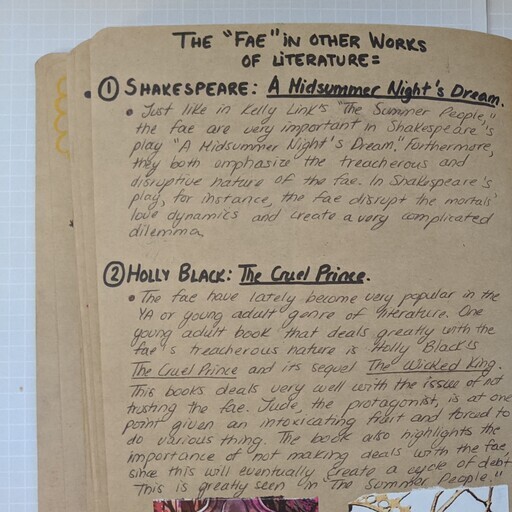 THE "FAE" IN OTHER WORKS
OF LITERATURE=
① SHAKESPEARE: A Midsummer Night's Dream.
• Just like in Kelly Link's "The Summer People,"
the fae are very important in Shakespeare's
play "A Midsummer Night's Dream." Furthermore,
they both emphasize the treacherous and
disruptive nature of the fae. In Shakespeare's
play, for instance, the fae disrupt the mortals'
love dynamics and create a very complicated
dilemma.
② HOLLY BLACK: The Cruel Prince.
• The fae have lately become very popular in the
YA or young adult genre of literature. One
young adult book that deals greatly with the
fae's treacherous nature is Holly Black's
The Cruel Prince and its sequel The Wicked King.
This books deals very well with the issue of not
trusting the fae. Jude, the protagonist, is at one
point given an intoxicating fruit and forced to
do various thing. The book also highlights the
importance of not making deals with the fae,
since this will eventually create a cycle of debt
This is greatly seen in "The Summer People."